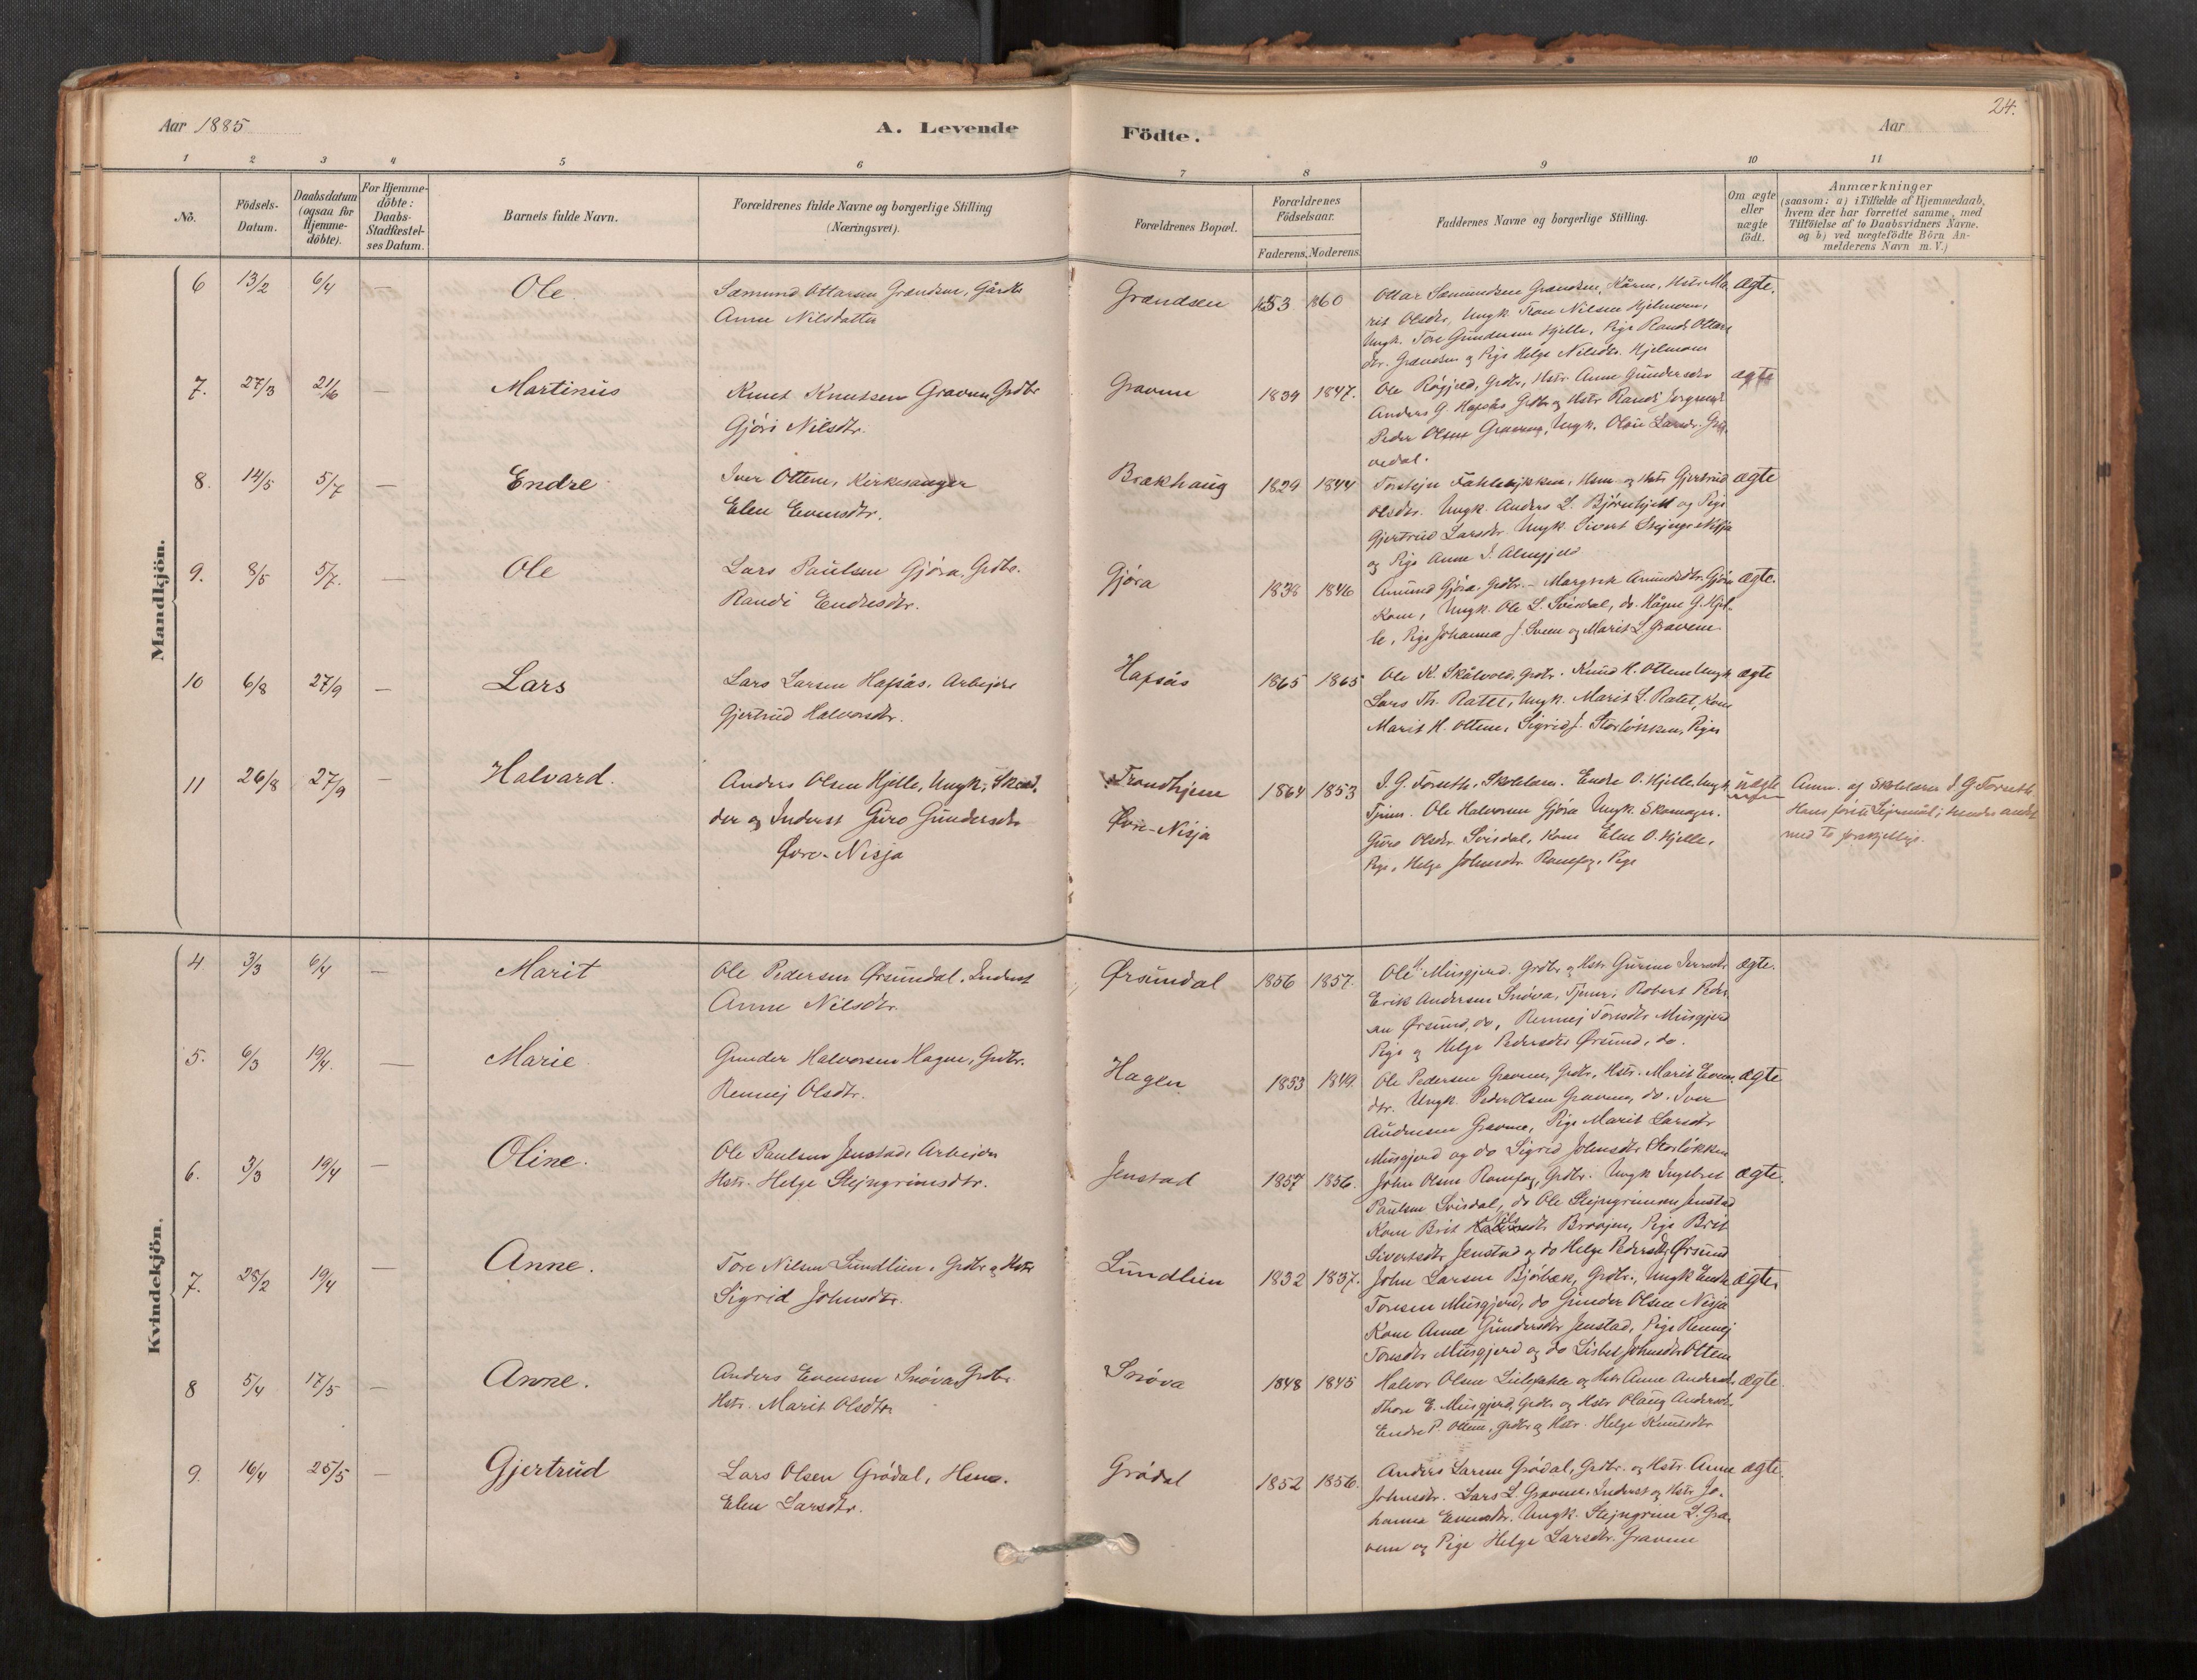 24.
Aar 1885
A. Levende
Födte.
Aar
1 2 3 4 5 6 7 8 9 10 11
No.
Födsels-Datum.
Daabsdatum (ogsaa for Hjemme-döbte).
For Hjemme-döbte: Daabs-Stadfæstel-ses Datum.
Barnets fulde Navn.
Forældrenes fulde Navne og borgerlige Stilling (Næringsvei).
Forældrenes Bopæl.
Forældrenes Födselsaar.
Faderens. Moderens.
Faddernes Navne og borgerlige Stilling.
Om ægte eller uægte födt.
Anmærkninger
(saasom: a) i Tilfælde af Hjemmedaab,
hvem der har forrettet samme, med
Tilföielse af to Daabsvidners Navne.
og b) ved uægtefödte Börn An-
melderens Navn m. V.)
Mandkjön.
6 13/2 6/4 — Ole
Sæmund Ottarsen Grændsen, Gårdb
Anne Nilsdatter
Grændsen 1853 1860
Ottar Sæmundsen Grændsen, Kårm, Hstr. Ma-
rit Olsdtr, Ungk. Tron Nilsen Hjelmoen,
Ungk. Tore Gundersen Hjelle, Pige Randi Ottars
dtr. Grændsen og Pige Helge Nilsdtr. Hjelmoen
ægte.
7. 27/3 21/6 — Martinus
Knut Knutsen Gravem, Grdbr
Gjöri Nilsdtr.
Gravem 1834 1847.
Ole Röjgjerd, Grdbr, Hstr. Anne Gundersdtr
Anders G. Hafsås Grdbr og Hstr Randi
Peder Olsen Gravem, Ungk. Larsdr. Grö-
vedal.
ægte
8. 14/5 5/7 — Endre
Iver Ottem, Kirkesanger
Elen Evensdtr.
Brækhaug 1829 1844
Torstejn Fahlelykken, Hsm og Hstr Gjertrud
Olsdtr. Ungk. Anders L. Björnhjell og Pige
Gjertrud Larsdtr Ungk. Sivert Stejngr. Nisja
og Pige Anne I. Almgjeld
ægte
9. 8/5 5/7. — Ole
Lars Paulsen Gjöra, Grdbr.
Randi Endresdtr.
Gjöra 1838 1846
Amund Gjöra, Grdbr. — Margrete Amundsdtr. Gjöra
Kone, Ungk. Ole L. Svisdal, do. Hågen G. Hjel-
le, Pige Johanna J. Sveen og Marit L. Gravem.
ægte.
10 6/8 27/9 — Lars
Lars Larsen Hafsås. Arbejder
Gjertrud Halvorsdtr.
Hafsås 1865 1865
Ole K. Skålvold, Grdbr. Knud H. Ottem Ungk
Lars Th. Ratet, Ungk. Marit L. Ratet, Kone
Marit H. Ottem, Sigrid J. Storlökken, Piger
ægte
11 26/8 27/9 — Halvard.
Anders Olsen Hjelle, Ungk. Skræd-
der og Inderst Guro Gundersdtr
Övre-Nisja
Trondhjem
Övre-Nisja
1864 1853
I. G. Forseth, Skolelærer. Endre O. Hjelle, Ungk
Tjener. Ole Halvorsen Gjöra Ungk. Skomager.
Guro Olsdtr. Svisdal, Kone Elen O. Hjelle,
Pige, Helge Johnsdtr. Romfog, Pige
uægte
Anm. af Skolelærer I. G. Forseth.
Hans förste Lejermål; hendes andet
med to forskjellige.
Kvindekjön.
4 3/3 6/4 — Marit
Ole Pedersen Örsundal, Inderst
Anne Nilsdtr.
Örsundal 1856 1857.
Ole Musgjerd. Grdbr og Hstr Gurine Iversdtr
Erik Andersen Snöva, Tjener, Robert Peder-
sen Örsund, do, Rennej Toresdtr. Musgjerd
Pige og Helge Pedersdtr Örsund, do.
ægte.
5. 6/3 19/4. — Marie.
Gunder Halvorsen Hagen, Grdbr.
Rennej Olsdtr.
Hagen 1853 1849.
Ole Pedersen Gravem, Grdbr, Hstr. Marit Evens-
dtr. Ungk. Peder Olsen Gravem, do. Iver
Audunsen Gravem, Pige Marit Larsdtr
Musgjerd og do Sigrid Johnsdtr Storlökken
ægte
6. 3/3 19/4 — Oline.
Ole Paulsen Jenstad, Arbejder
Hstr. Helge Stejngrimsdtr.
Jenstad 1857 1856.
John Olsen Romfog, Grdbr. Ungk Ingebret
Paulsen Svisdal, do Ole Stejngrimsen Jenstad
Kone Brit Nilsdtr. Broöjen, Pige Brit
Sivertsdtr Jenstad og do Helge Pedersdtr, Örsund
ægte.
7. 25/2 19/4 — Anne.
Tore Nilsen Lundlien, Grdbr og Hstr
Sigrid Johnsdtr.
Lundlien 1832 1837.
John Larsen Björbæk, Grdbr., Ungk Endre
Toresen Musgjerd, do Gunder Olsen Nisja
Kone Anne Gundersdtr Jenstad, Pige Rennej
Toresdtr Musgjerd og do Lisbet Johnsdtr Ottem
ægte.
8 5/4 17/5 — Anne.
Anders Evensen Snöva Grdbr
Hstr. Marit Olsdtr
Snöva 1848 1845
Halvor Olsen Lillefahle og Hstr Anne Andersdtr
Thore E. Musgjerd, Grdbr og Hstr Olaug Andersdtr.
Endre P. Ottem, Grdbr og Hstr. Helge Knutsdtr
ægte.
9. 16/4 25/5 — Gjertrud
Lars Olsen Grödal, Hsm.
Elen Larsdtr.
Grödal 1852 1856.
Anders Larsen Grödal, Grdbr. og Hstr. Anne
Johnsdtr. Lars L. Gravem, Inderst og Hstr Jo-
hanna Evensdtr. Ungk. Stejngrim L. Gra-
vem og Pige Helge Larsdtr. Gravem
ægte.